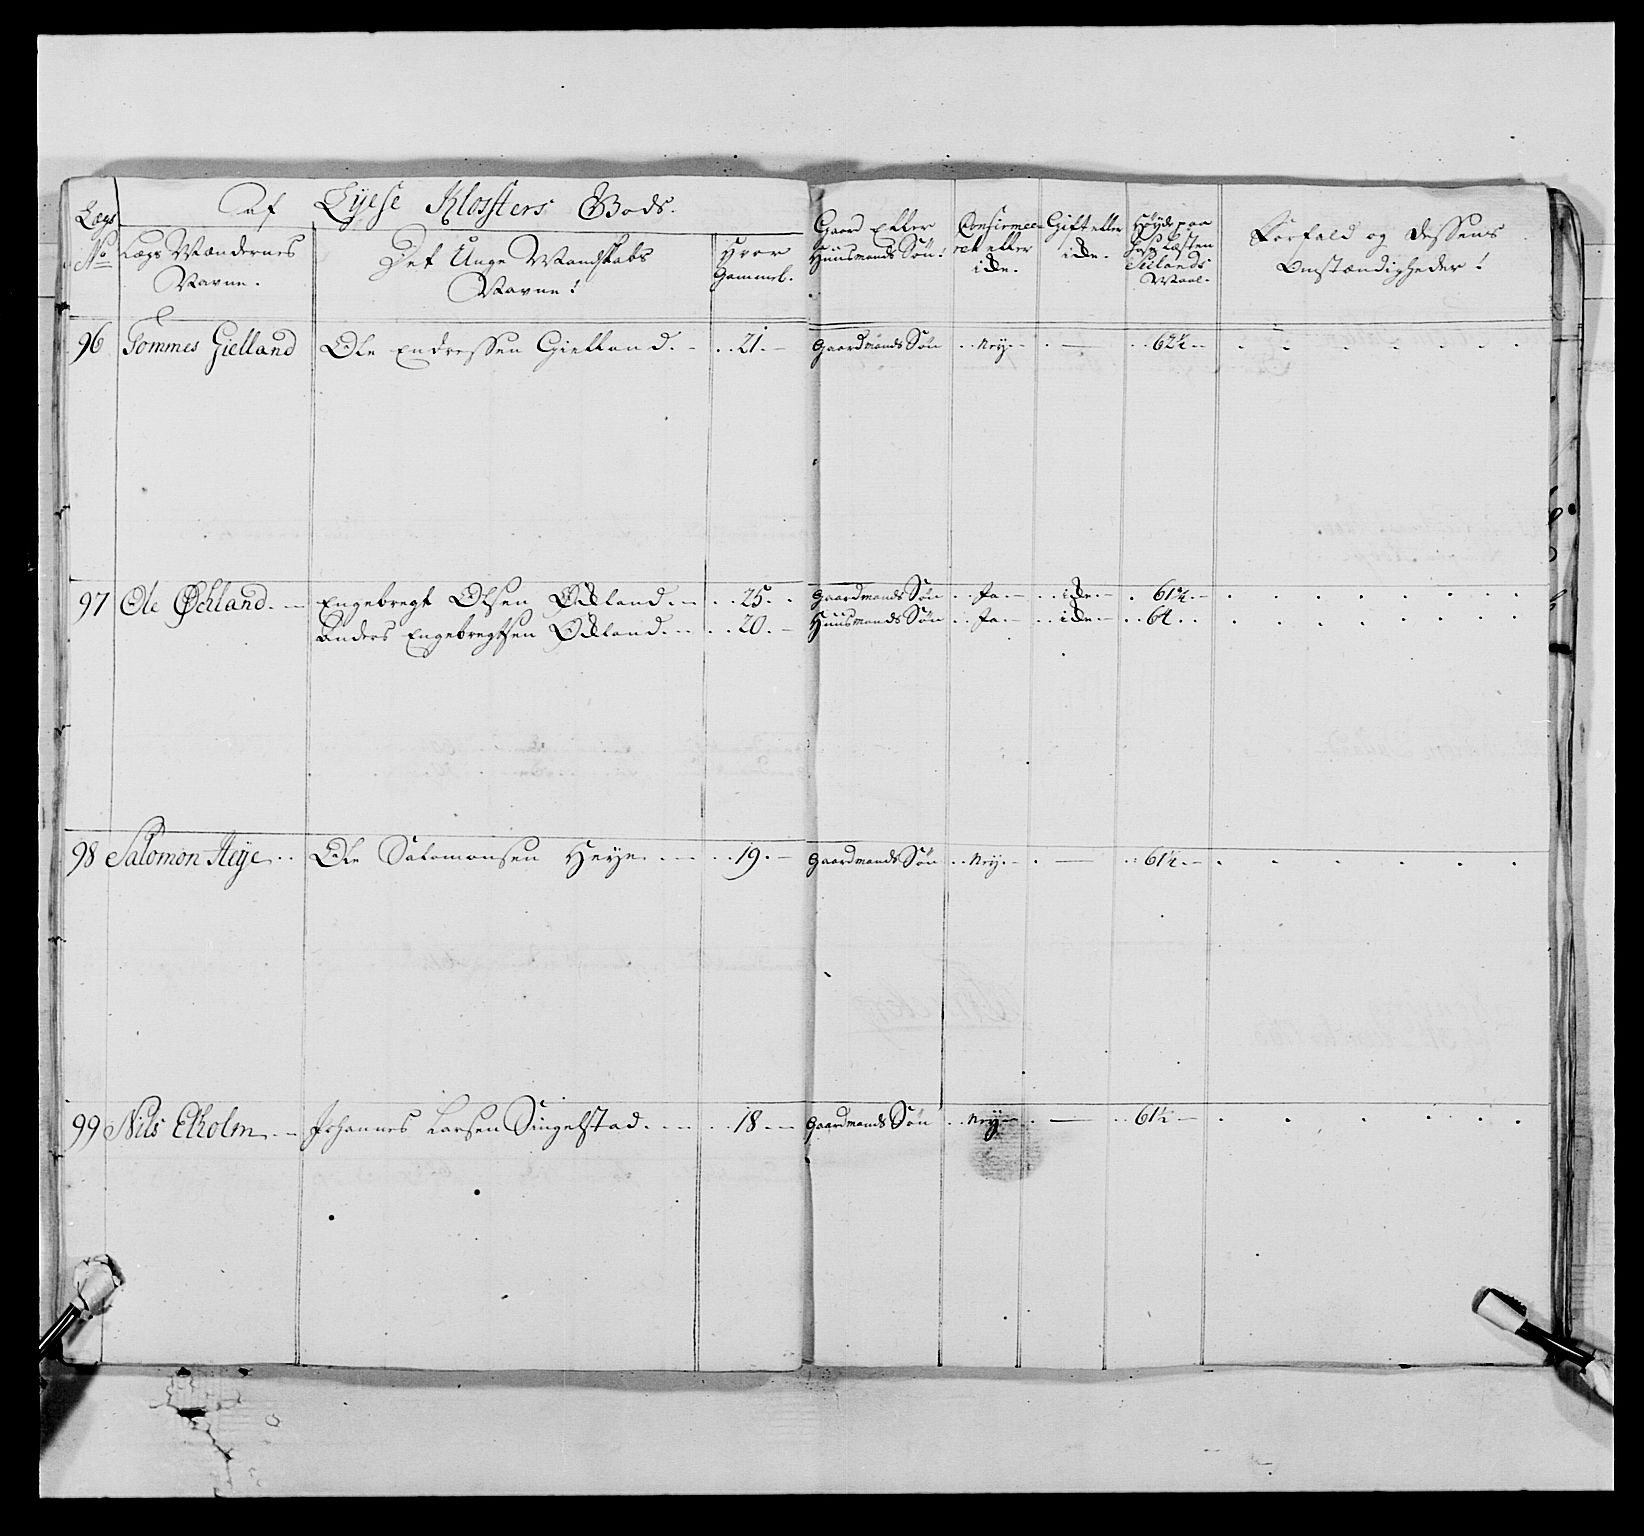 af Lÿese Klosters Gods.
Lægs No
Lægs Mændernes Navne.
Det Unge Mandskabs Navne!
Hvor Gammel.
Gaard eller Huusmands Søn!
Confirmeeret eller icke.
Gift eller icke.
Høyde paa Hose Læsten Sielands Maal.
Forfald og dessens Omstændigheder!
96 Tommes Gielland Ole Endressen Gielland. 21. Gaardmands Søn Neÿ. — 62¼
97 Ole Ødland. Engebregt Olsen Ødland. 25. Gaardmands Søn Ja. icke. 61¼
Anders Engebregtsen Ødland. 20. Huusmands Søn Ja. icke. 64.
98 Salomon Heÿe. Ole Salomonsen Heÿe. 19. Gaardmands Søn Neÿ. — 61½
99 Nils Ekolm. Johannes Larsen Singelstad. 18. Gaardmands Søn Neÿ. — 61½